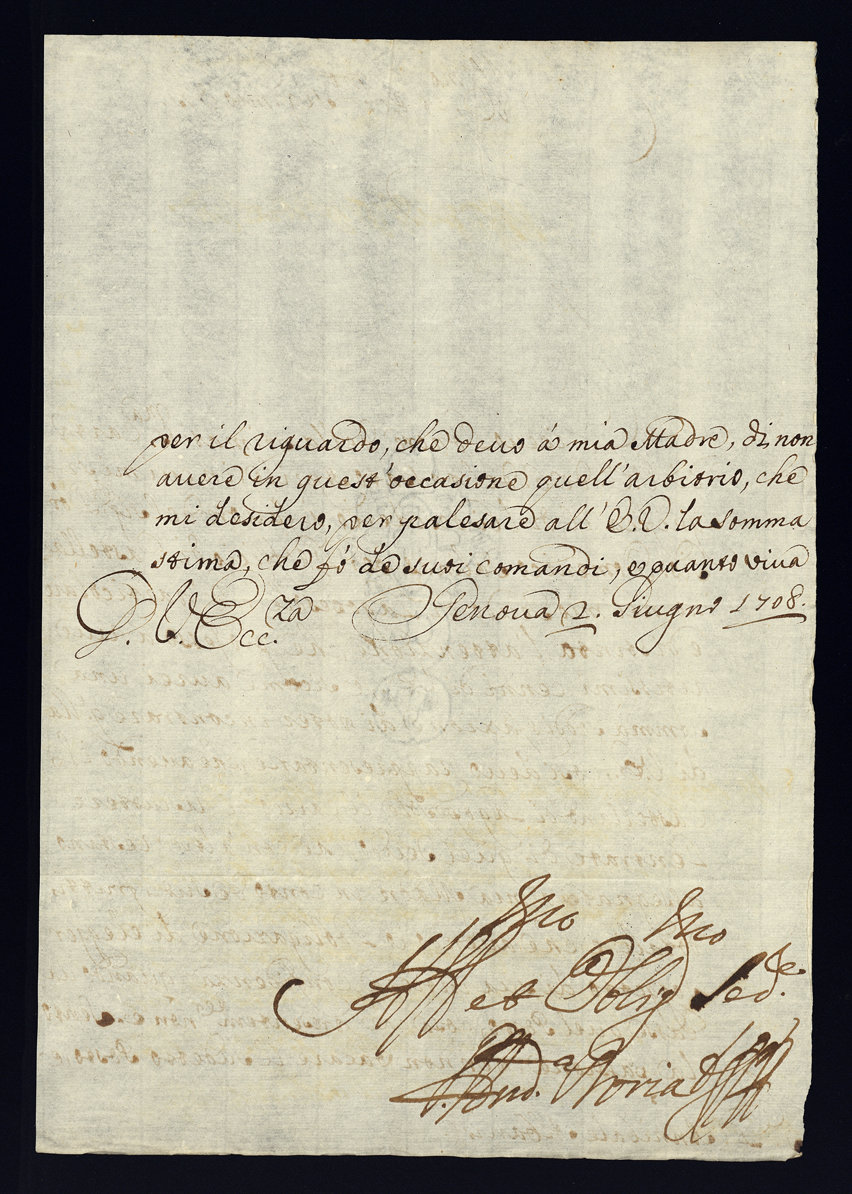 per il riguardo, che deuo à mia Madre, di non
auere in quest'occasione quell'arbitrio, che
mi desidero, per palesare all'E.V. la somma
stima, che fò de suoi comandi, e quanto viua
D. V. Ecc.za Genoua 2. Giugno 1708.
Aff.mo et Oblig.mo
And.a Doria